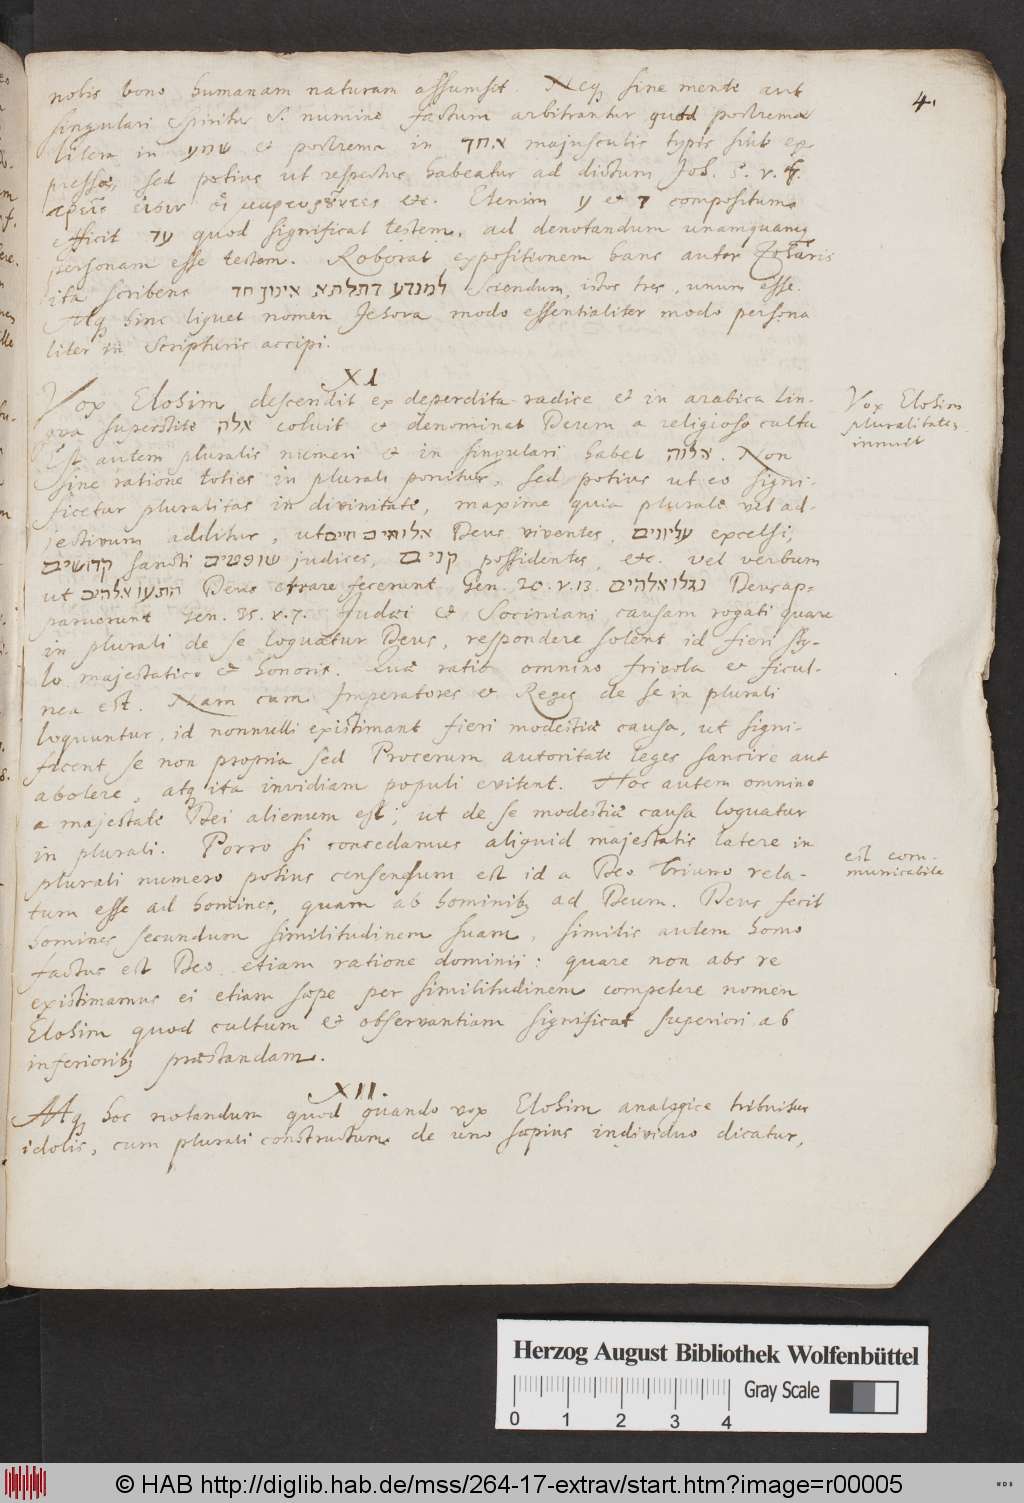 4.
nobis bono humanam naturam assumsit. Neq; sine mente aut
singulari Spiritus S. numine factum arbitrantur quod postrema
litera in שמע et postrema in אחד majusculis typis sint ex-
pressæ, sed potius ut respectus habeatur ad dictum Joh. 5. v.
τρεῖς εἰσιν οἱ μαρτυροῦντες etc. Etenim ע et ד compositum
efficit עד quod significat testem, ad denotandum unamquamq;
personam esse testem. Roborat expositionem hanc autor Zoharis
ita scribens למנדע דתלתא אינון חד Sciendum, istos tres, unum esse.
Atq; hinc liquet nomen Jehova modo essentialiter modo persona
liter in Scripturis accipi.
XI.
Vox Elohim descendit ex deperdita radice et in arabica lin-
gua superstite אלה coluit et denominat Deum a religioso cultu
Est autem pluralis numeri et in singulari habet אלוה. Non
sine ratione toties in plurali ponitur, sed potius ut eo signi-
ficetur pluralitas in divinitate, maxime quia plurale vel ad-
jectivum additur, ut אלוהים חיים Deus viventes, עליונים excelsi,
קדושים sancti שופטים judices, קנים possidentes, etc. vel verbum
ut התעו אלהים Deus errare fecerunt Gen. 20. v. 13. נגלו אלהים Deus ap-
paruerunt Gen. 35. v. 7. Judæi et Sociniani causam rogati quare
in plurali de se loquatur Deus, respondere solent id fieri sty-
lo majestatico et honoris. Quæ ratio omnino frivola et ficul-
nea est. Nam cum Imperatores et Reges de se in plurali
loquuntur, id nonnulli existimant fieri modestiæ causa, ut signi-
ficent se non propria sed Procerum autoritate leges sancire aut
abolere, atq; ita invidiam populi evitent. Hoc autem omnino
a majestate Dei alienum est, ut de se modestiæ causa loquatur
in plurali. Porro si concedamus aliquid majestatis latere in
plurali numero potius censendum est id a Deo triuno rela-
tum esse ad homines, quam ab hominib; ad Deum. Deus fecit
homines secundum similitudinem suam, similis autem homo
factus est Deo etiam ratione dominii: quare non abs re
existimamus ei etiam sæpe per similitudinem competere nomen
Elohim quod cultum et observantiam significat superiori ab
inferiorib; præstandam.
XII.
Atq; hoc notandum quod quando vox Elohim analogice tribuitur
idolis, cum plurali constructum de uno sæpius individuo dicatur,
Vox Elohim
pluralitatem
innuit
est com-
municabile
Herzog August Bibliothek Wolfenbüttel
Gray Scale
0 1 2 3 4
© HAB http://diglib.hab.de/mss/264-17-extrav/start.htm?image=r00005